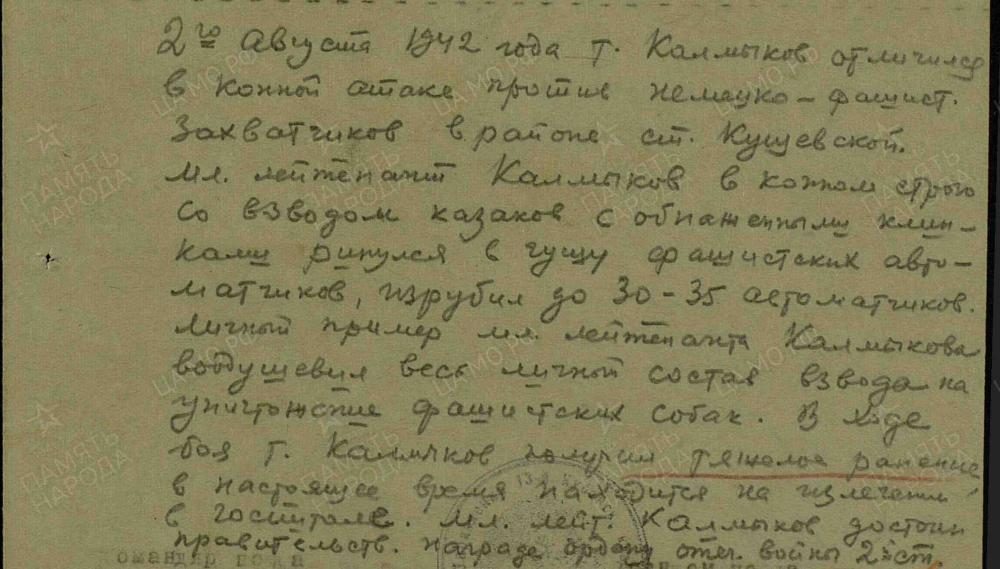 2го Августа 1942 года т. Калмыков отличился
в конной атаке против немецко-фашист.
захватчиков в районе ст. Кущевской.
Мл. лейтенант Калмыков в конном строю
со взводом казаков с обнаженными клин-
ками ринулся в гущу фашистских авто-
матчиков, изрубил до 30-35 автоматчиков.
Личный пример мл. лейтенанта Калмыкова
воодушевил весь личный состав взвода на
уничтожение фашистских собак. В ходе
боя т. Калмыков получил тяжелое ранение
в настоящее время находится на излечении
в госпитале. Мл. лейт. Калмыков достоин
правительств. награде ордену отеч. войны 2й ст.
командир полка
ПАМЯТЬ НАРОДА
ЦАМО РФ